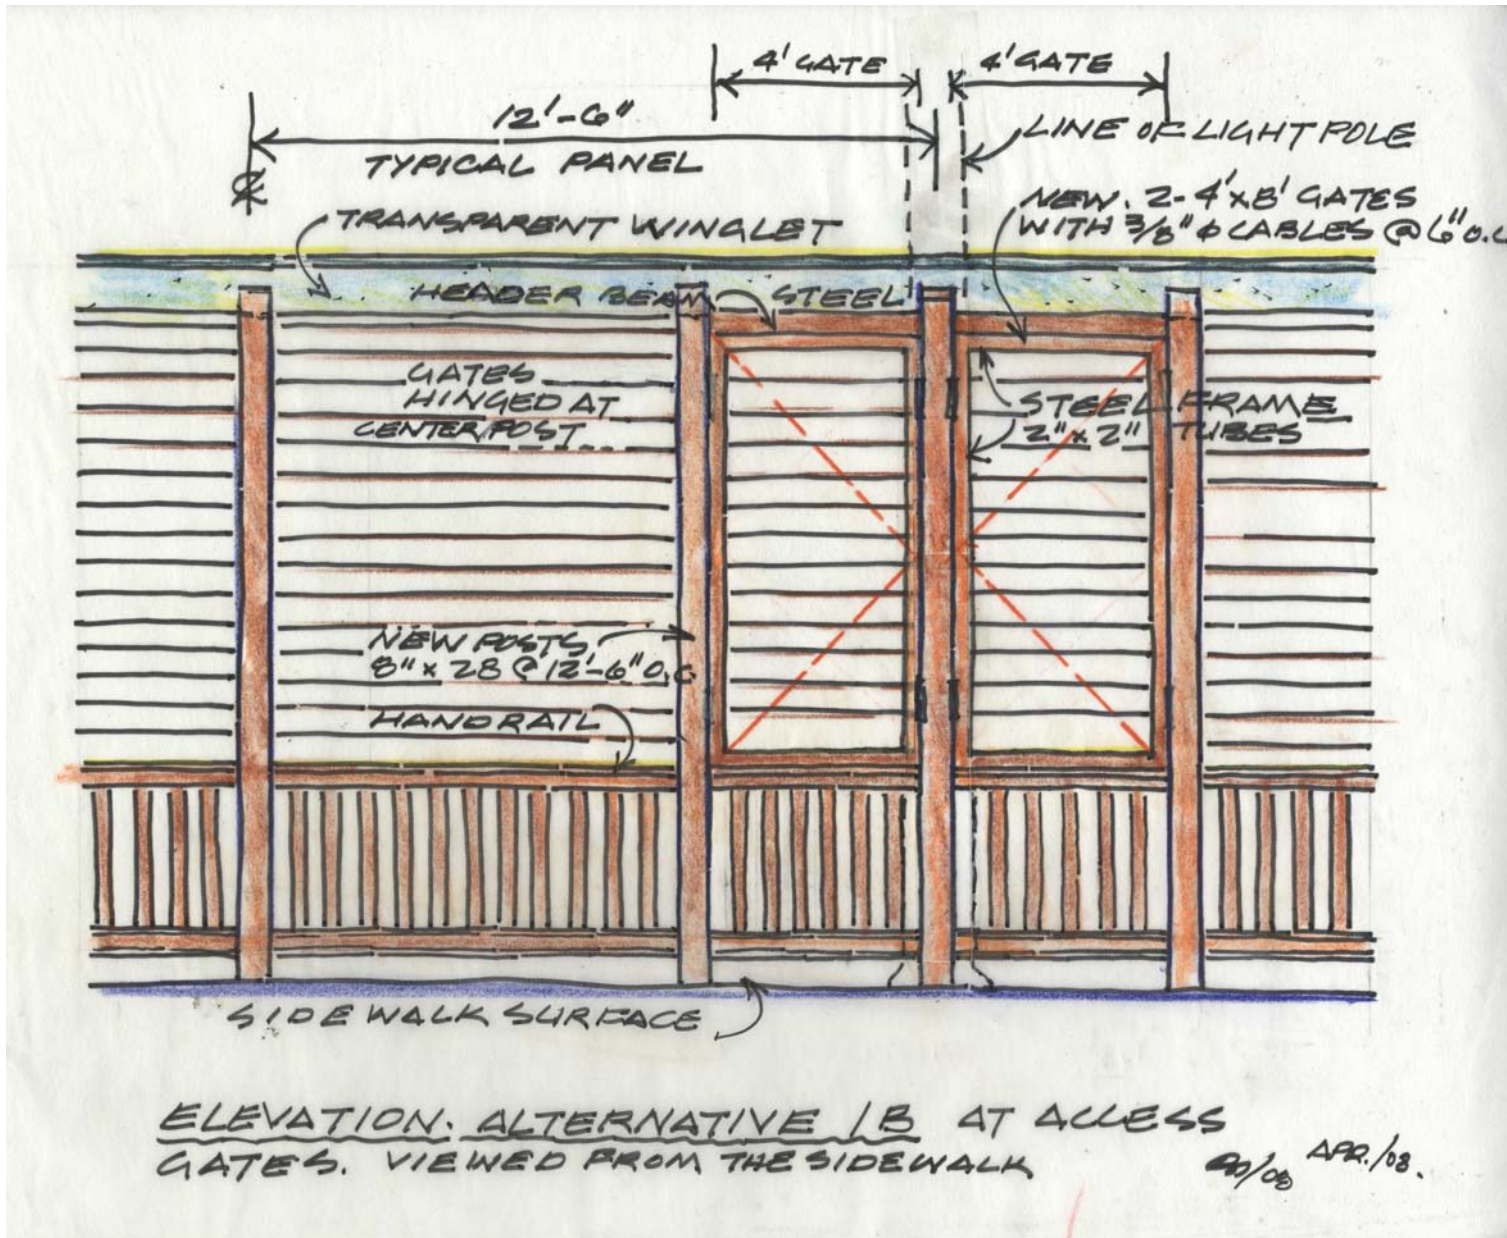 4' GATE
4' GATE
12'-6"
TYPICAL PANEL
LINE OF LIGHT POLE
NEW. 2-4'x8' GATES
WITH 3/8" φ CABLES @ 6" O.C
TRANSPARENT WINGLET
HEADER BEAM STEEL
GATES
HINGED AT
CENTER POST
STEEL FRAME
2" x 2" TUBES
NEW POSTS
8" x 28 @ 12'-6" O.C
HANDRAIL
SIDEWALK SURFACE
ELEVATION. ALTERNATIVE 1B AT ACCESS
GATES. VIEWED FROM THE SIDEWALK
APR./08.